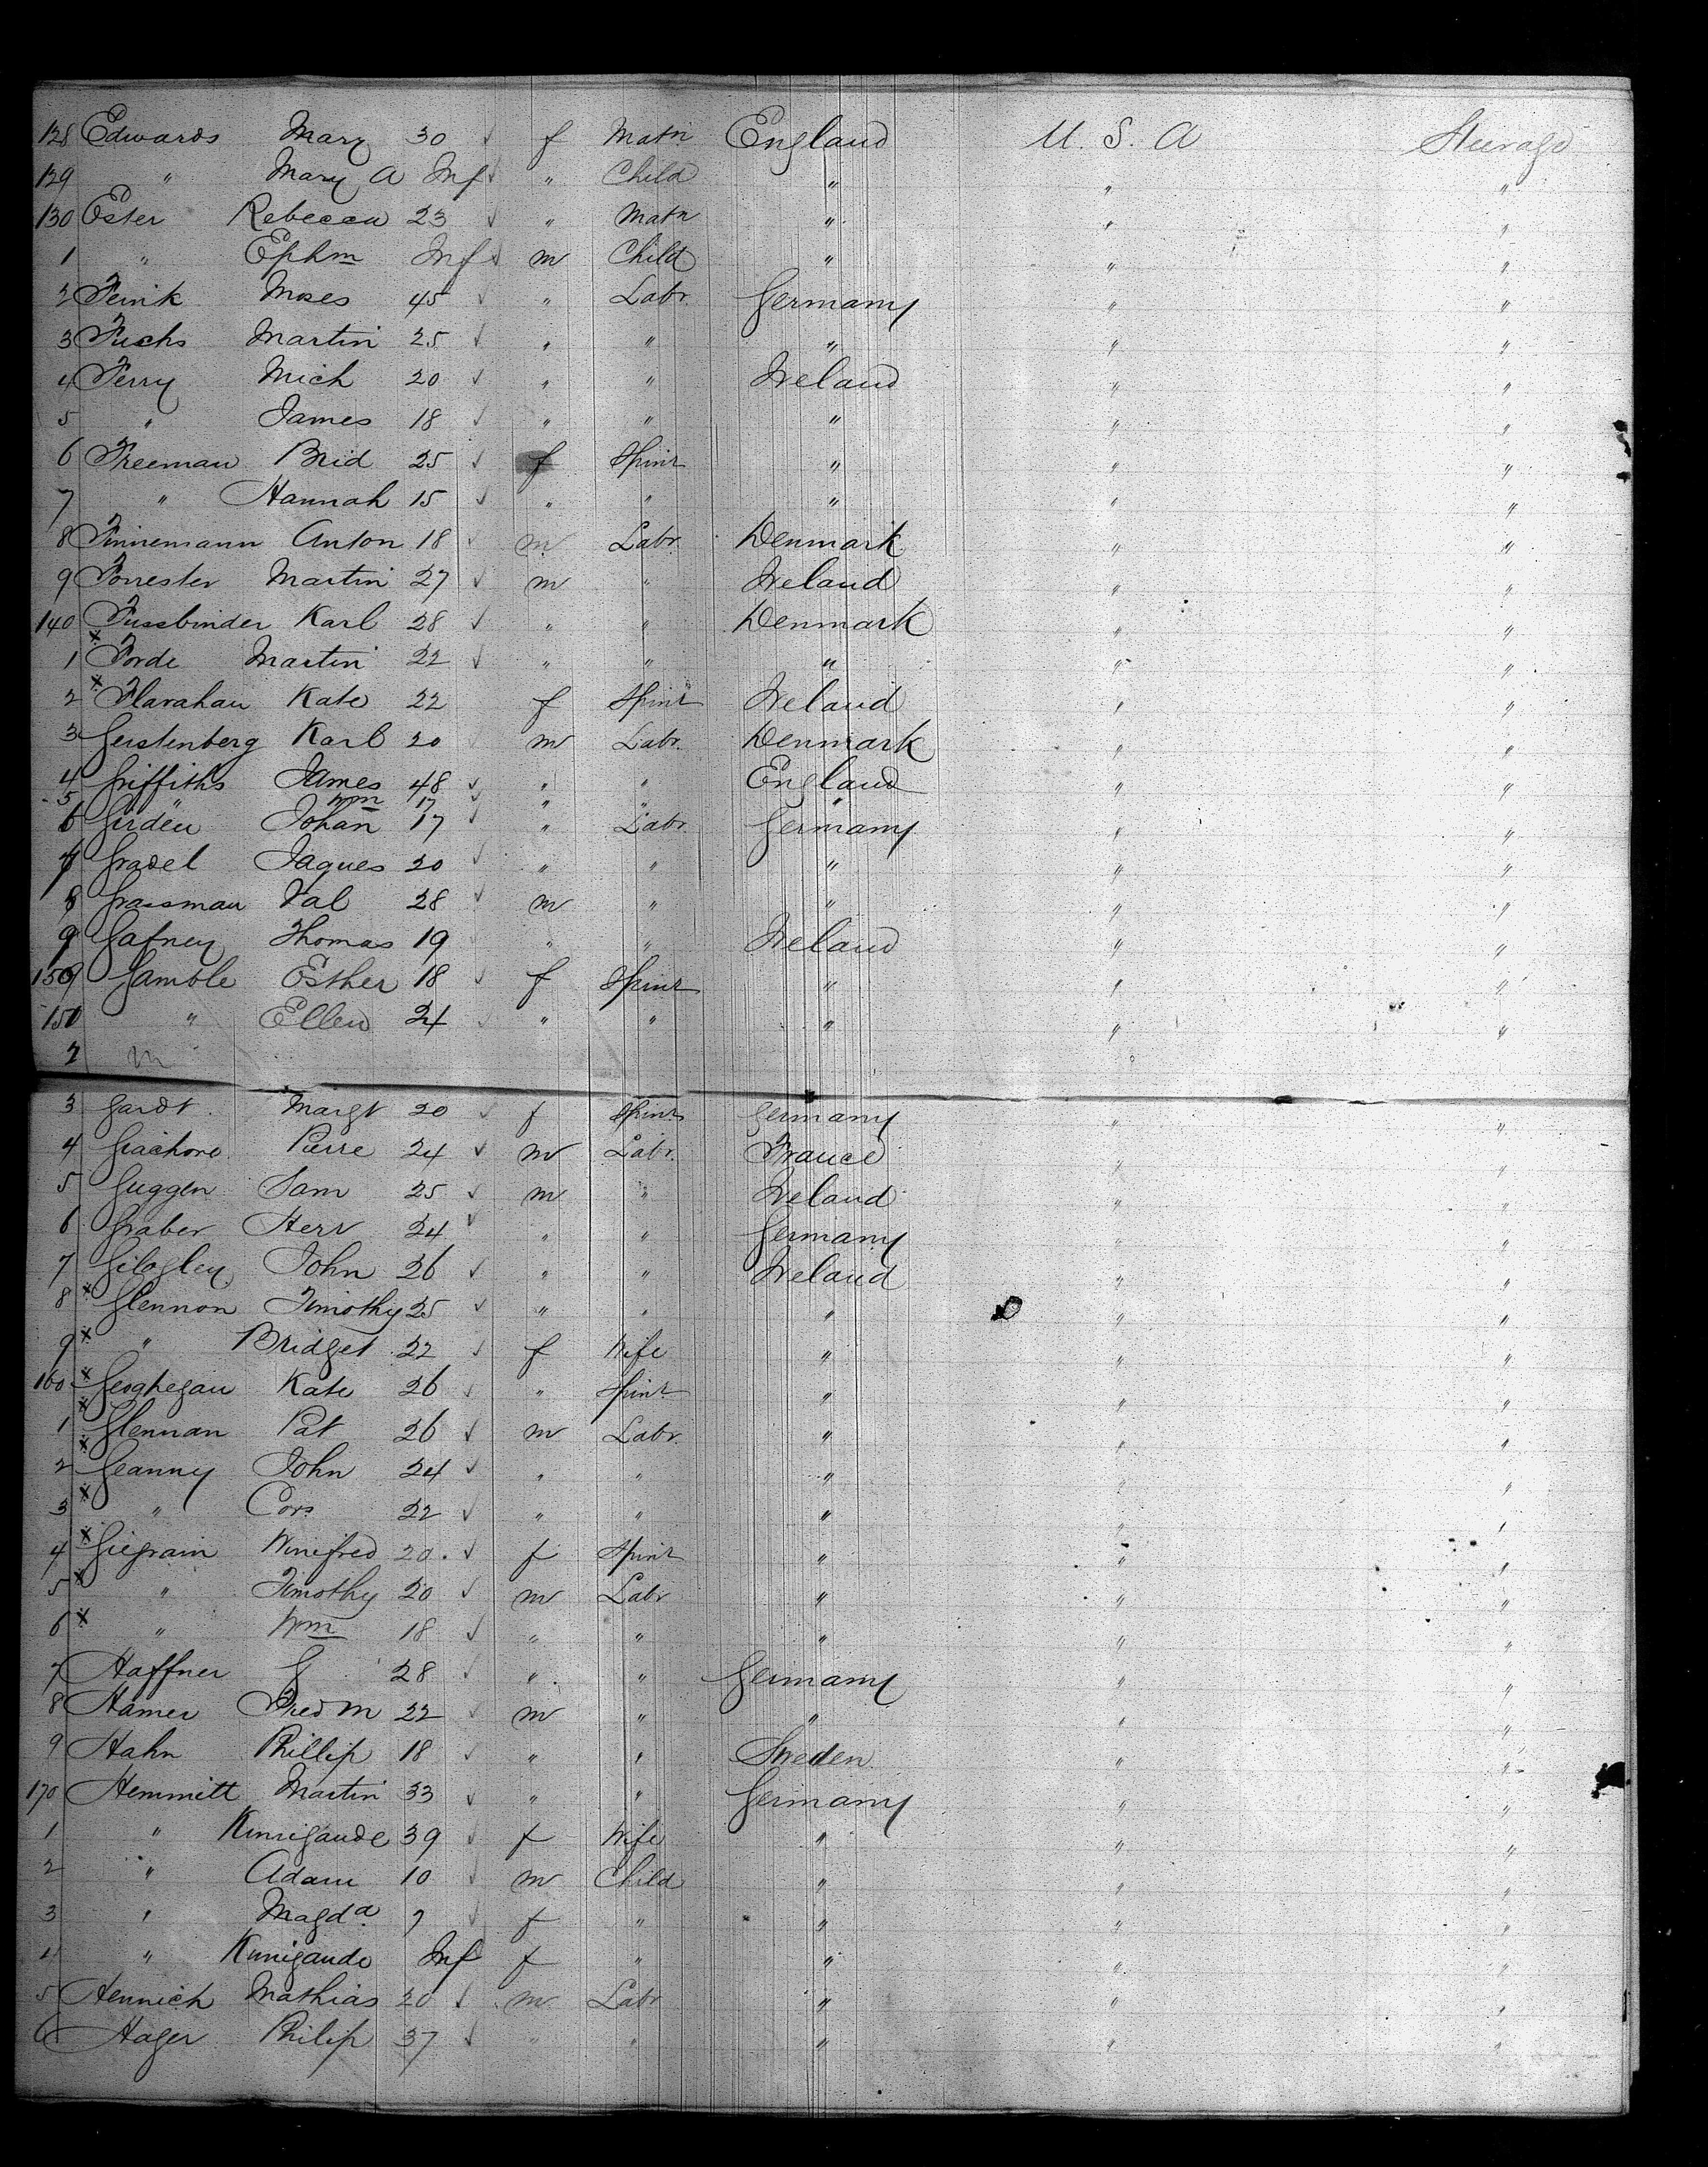 128 Edwards Mary 30 ✓ f Matn England U. S. A Steerage
129 " Mary A Inf ✓ " Child " " "
130 Ester Rebecca 23 ✓ " Matn " " "
1 " Ephm Inf ✓ m Child " " "
2 Feink Moses 45 ✓ " Labr. Germany " "
3 Fuchs Martin 25 ✓ " " " " "
4 Ferry Mich 20 ✓ " " Ireland " "
5 " James 18 ✓ " " " " "
6 Freeman Brid 25 ✓ f Spinr " " "
7 " Hannah 15 ✓ " " " " "
8 Finnemann Anton 18 ✓ m Labr. Denmark " "
9 Forrester Martin 27 ✓ m " Ireland " "
140 Fussbinder Karl 28 ✓ " " Denmark " "
1 x Forde Martin 22 ✓ " " " " "
2 x Flavahan Kate 22 f Spinr Ireland " "
3 Gerstenberg Karl 20 ✓ m Labr. Denmark " "
4 Griffiths James 48 ✓ " " England " "
5 " Wm 17 ✓ " " "
6 Girden Johan 17 ✓ " Labr Germany " "
7 Gradel Jaques 20 ✓ " " " " "
8 Grassman Val 28 ✓ m " " " "
9 Gafney Thomas 19 ✓ " " Ireland " "
150 Gamble Esther 18 ✓ f Spinr " " "
151 " Ellen 24 ✓ " " " " "
2 m
3 Gardt. Margt 20 ✓ f Spinr Germany " "
4 Pierre 24 ✓ m Labr. France " "
5 Guggen Sam 25 ✓ m " Ireland " "
6 Graber Herr 24 ✓ " " Germany " "
7 Gilogley John 26 ✓ " " Ireland " "
8 x Glennon Timothy 25 ✓ " " " " "
9 x " Bridget 22 ✓ f Wife " " "
160 x Geoghegan Kate 26 ✓ " Spinr " " "
1 x Glennan Pat 26 ✓ m Labr. " " "
2 x Geanny John 24 ✓ " " " " "
3 x " Cors 22 ✓ " " " " "
4 x Giegrain Winifred 20. ✓ f Spinr " " "
5 x " Timothy 20 ✓ m Labr " " "
6 x " Wm 18 ✓ " " " " "
7 Haffner G 28 ✓ " " Germany " "
8 Hamer Fred M 22 ✓ m " " " "
9 Hahn Phillip 18 ✓ " " Sweden " "
170 Hemmitt Martin 33 ✓ " " Germany " "
1 " Kunigaude 39 ✓ f Wife " " "
2 " Adam 10 ✓ m Child " " "
3 " Magda 7 ✓ f " " " "
4 " Kunigaude Inf f " " " "
5 Hennich Mathias 20 ✓ m Labr " " "
6 Hager Philip 37 ✓ " " " " "